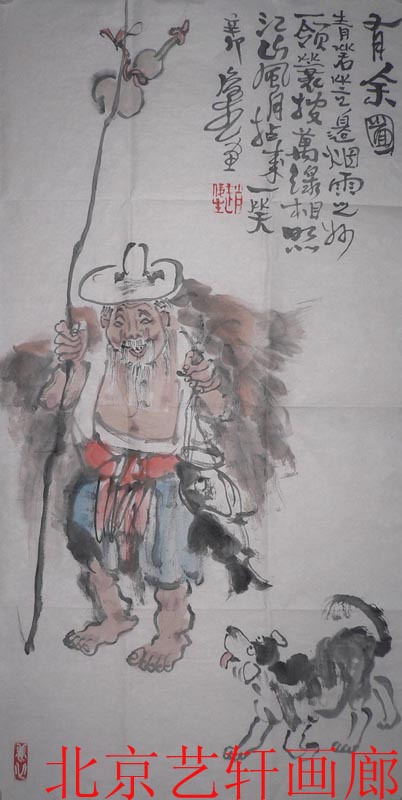 有余圖
青箬笠邊烟雨之妙
一領蓑披萬緣相照
江山風月拈來一笑
辛卯
北京艺轩画廊